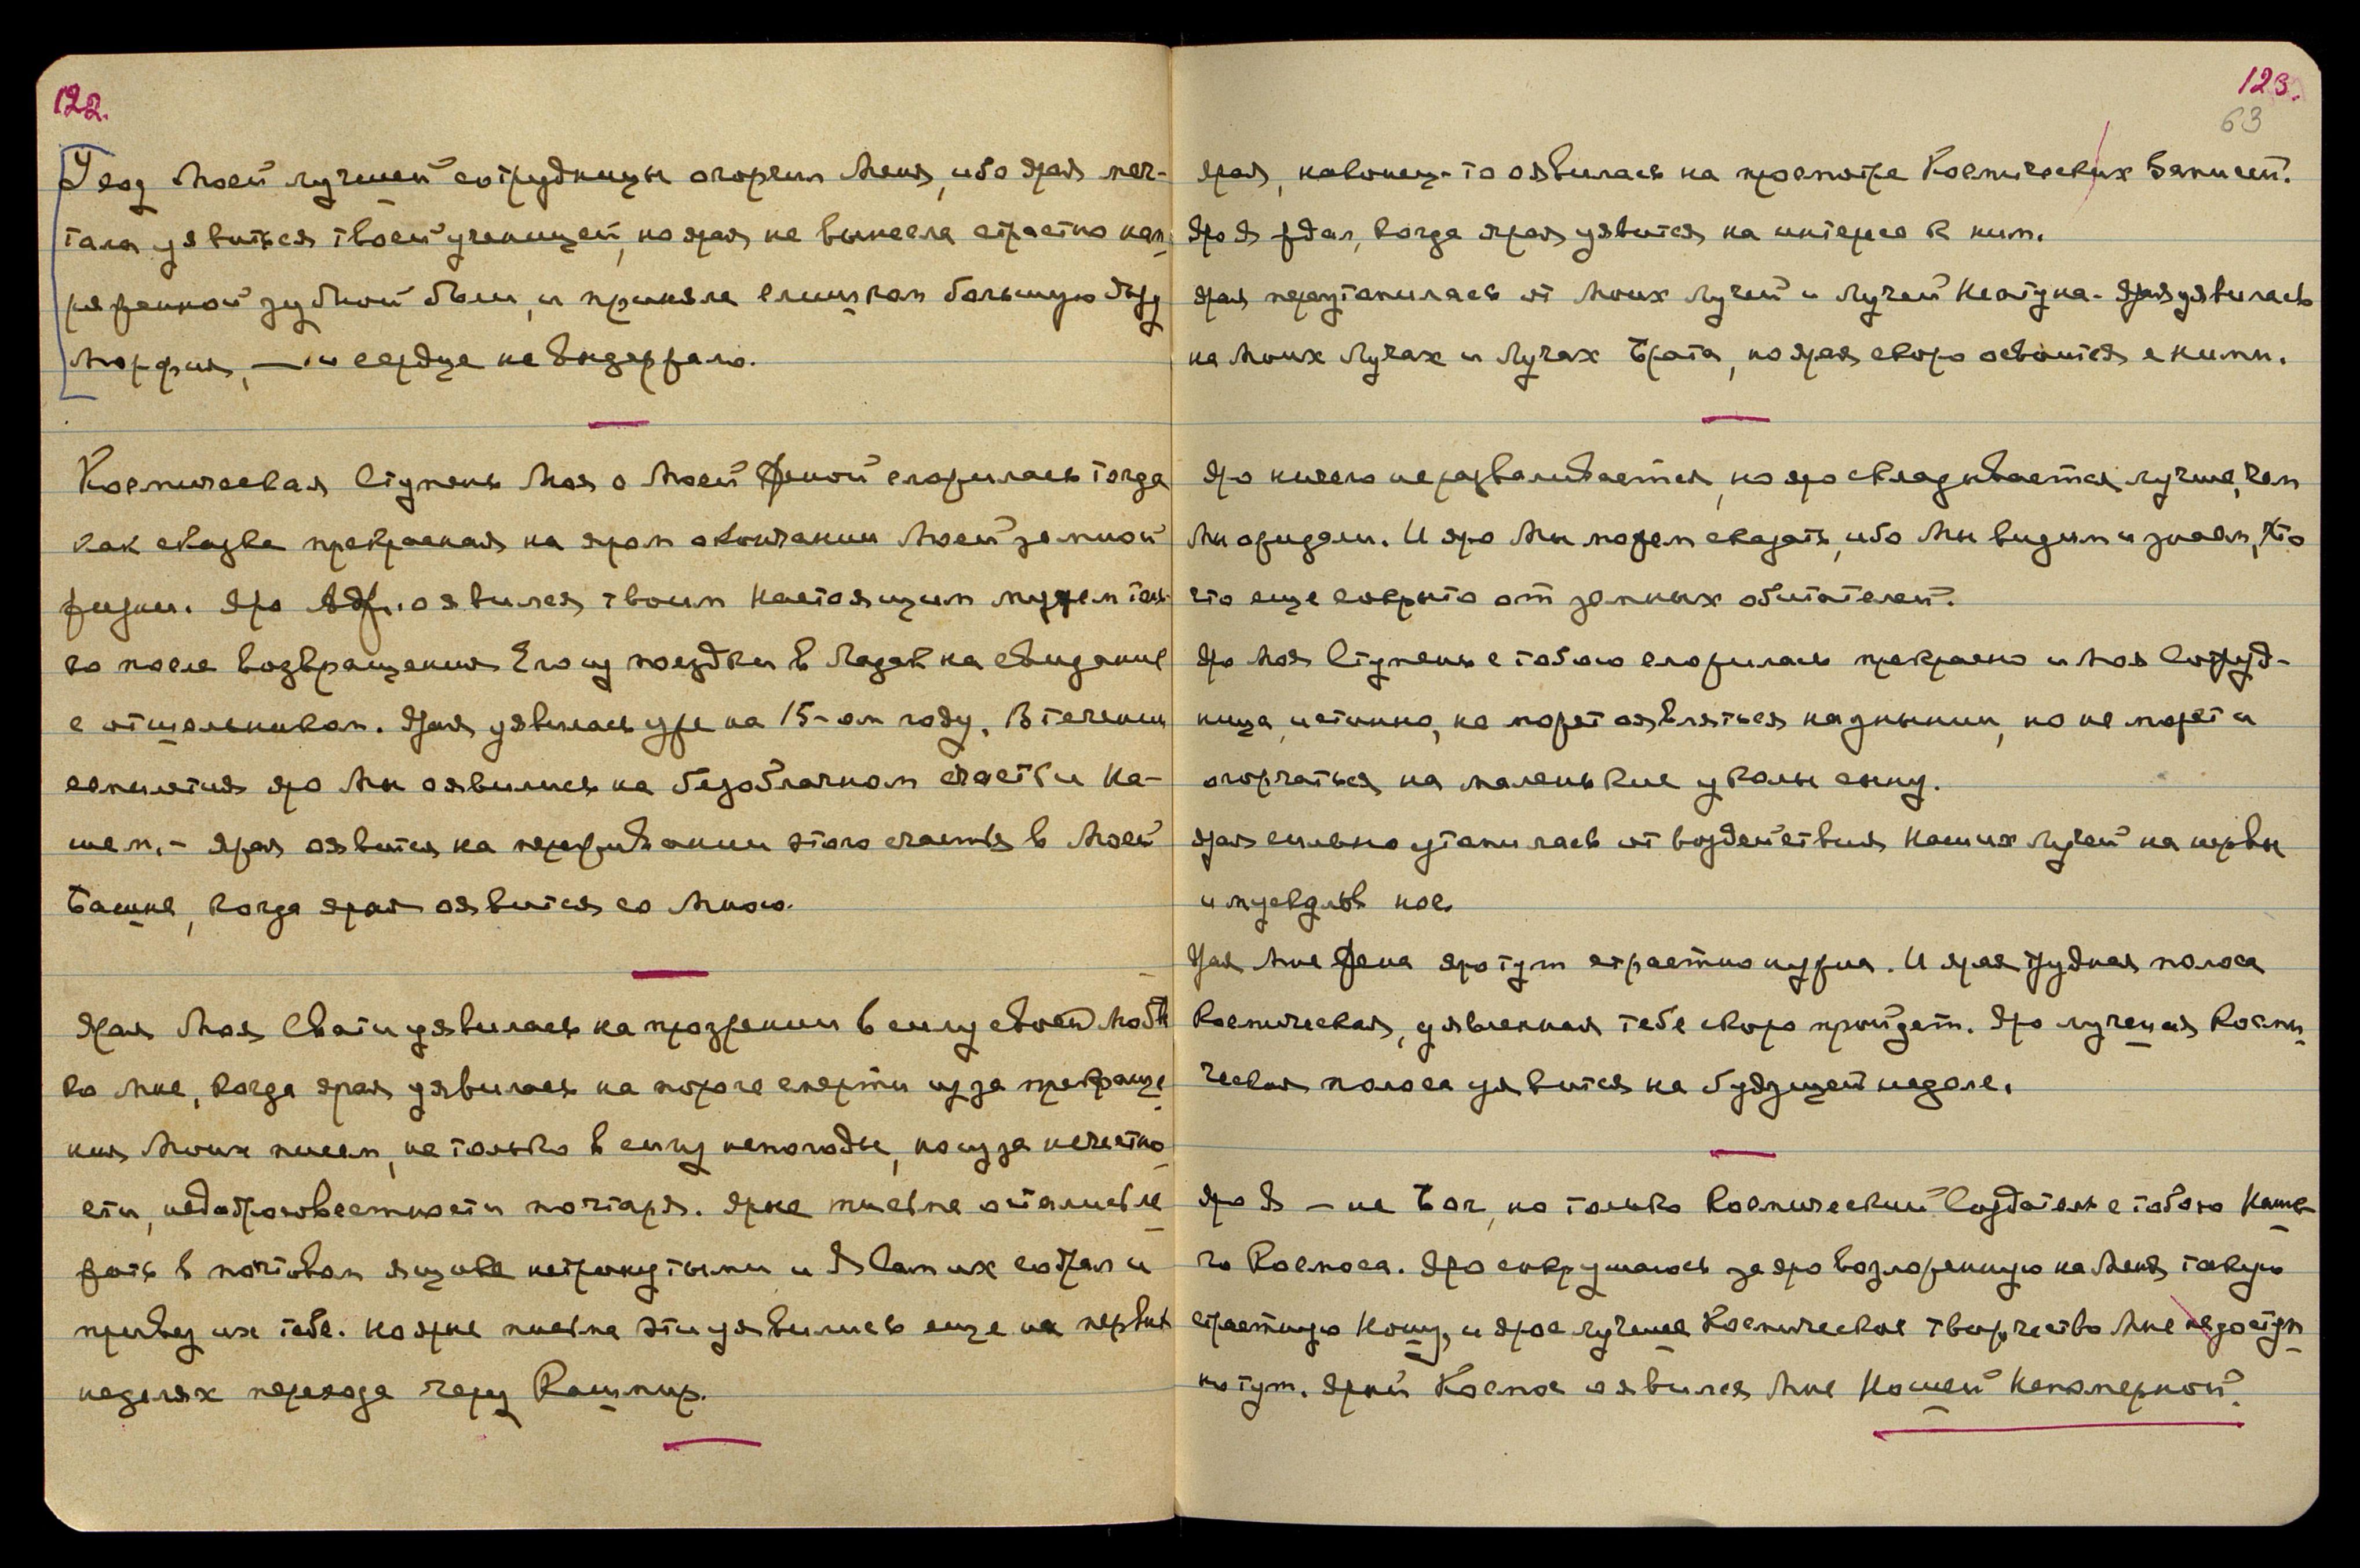 122.
Уход Моей лучшей сотрудницы огорчил Меня, ибо ярая меч-
тала уявиться твоей ученицей, но ярая не вынесла страстно нап
ряженной зубной боли, и приняла слишком большую дозу
морфия, — и сердце не выдержало.
Космическая Ступень Моя о Моей Женой сложилась тогда
как сказка прекрасная на яром окончании Моей земной
жизни. Яро оявился твоим настоящим мужем толь
ко после возвращения Его из поездки в Ладак на свидание
с отшельником. Ярая уявилась уже на 15-ом году. В течении
семилетия яро Мы оявились на безоблачном счастьи На-
шем. – Ярая оявится на переживании этого счастья в Моей
Башне, когда ярая оявится со Мною.
Ярая Моя Свати уявилась на прозрении в силу своей любви
ко Мне, когда ярая уявилась на пороге смерти из за прекраще
ния Моих писем, не только в силу непогоды, но из за нечестно
сти, недобросовестности почтаря. Ярые письма остались ле
жать в почтовом ящике нетронутыми и Я Сам их собрал и
привез их тебе. Но ярые письма эти уявились еще на первых
неделях перехода через Кашмир.
123.
63
ярая, наконец-то оявилась на просмотре Космических Записей.
Яро Я ждал, когда ярая уявится на интерес к ним.
Ярая переутомилась от Моих Лучей и Лучей Нептуна. Ярая уявилась
на Моих Лучах и Лучах Брата, но ярая скоро освоится с ними.
Яро ничего не разваливается, но яро складывается лучше, чем
Мы ожидали. И яро Мы можем сказать, ибо Мы видим и знаем, то
что еще сокрыто от земных обитателей.
Яро Моя Ступень с тобою сложилась прекрасно и Моя Сотруд-
ница, истинно, не может оявляться на унынии, но не может и
огорчаться на маленькие уколы сыну.
Ярая сильно утомилась от воздействия Наших Лучей на нервы
и мускулы ног.
Ярая Мне Жена яро тут страстно нужна. И ярая трудная полоса
Космическая, уявленная тебе скоро пройдет. Яро лучшая Косми
ческая полоса уявится на будущей неделе.
Яро Я – не Бог, но только Космический Создатель с тобою Наше
го Космоса. Яро сокрушаюсь за яро возложенную на Меня такую
страстную Ношу, и ярое лучшее Космическое творчество Мне недоступ
но тут. Ярый Космос оявился Мне Ношей Непомерной.